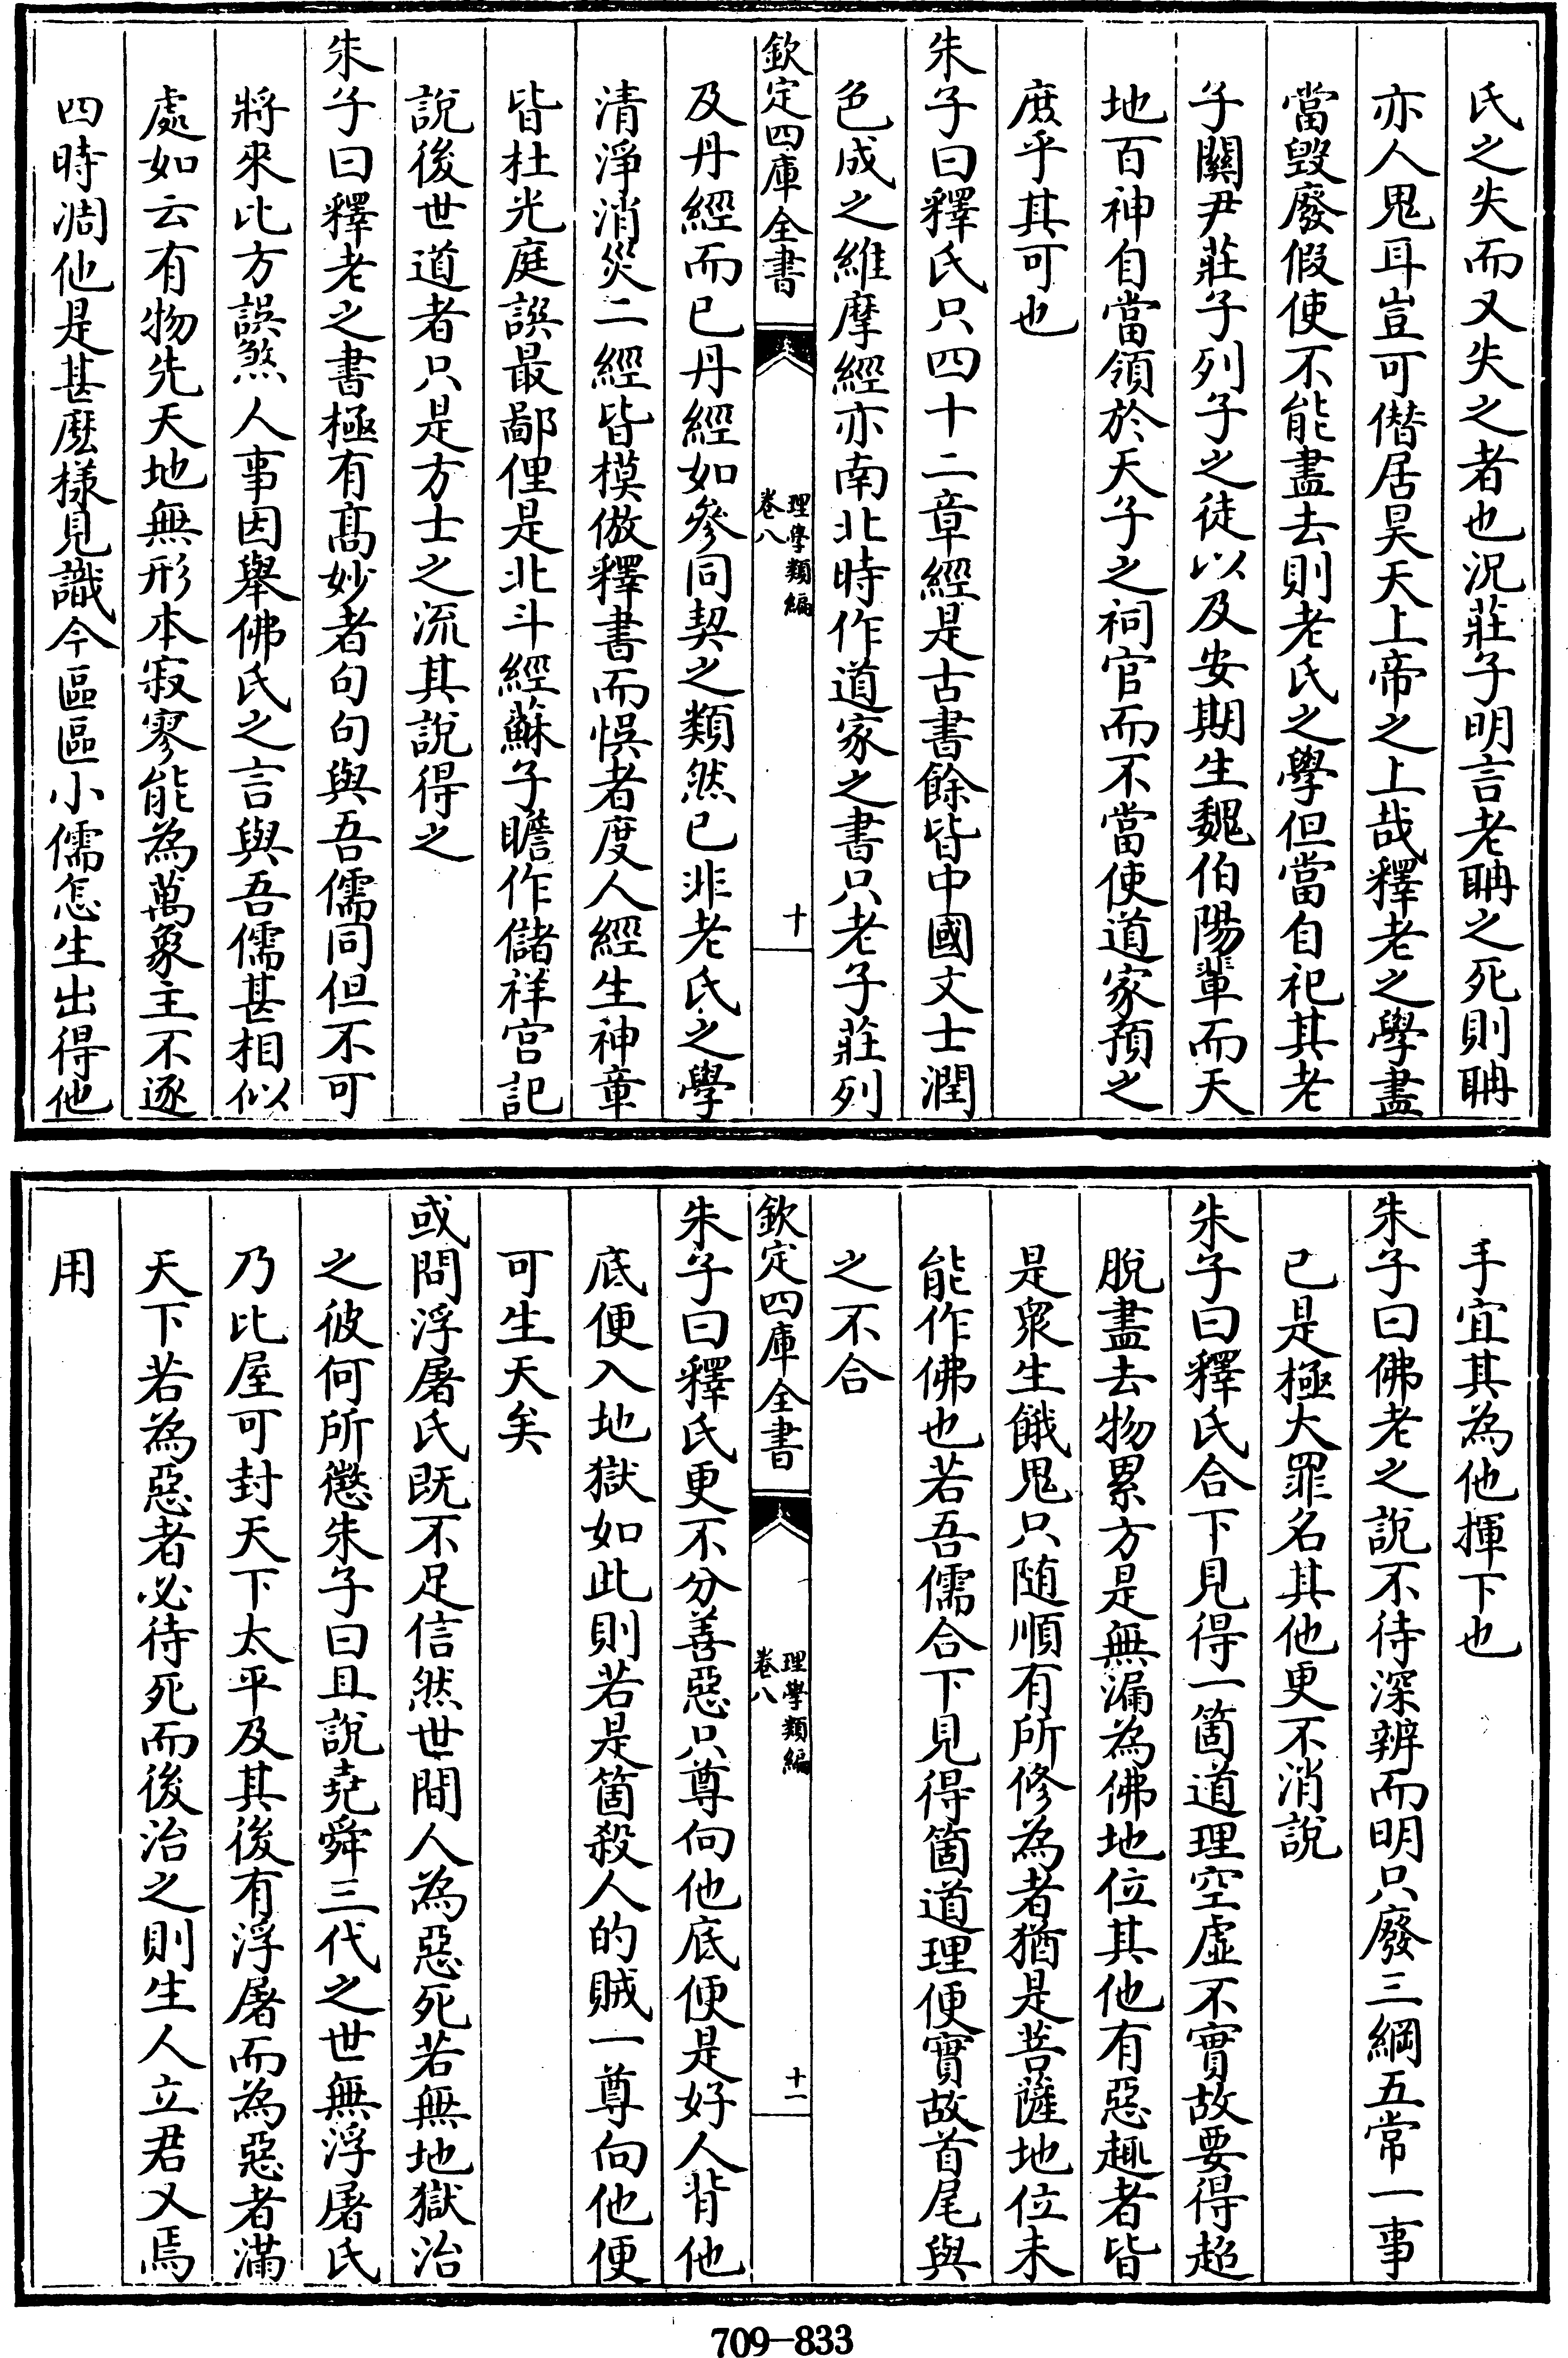 氏之失而又失之者也況莊子明言老聃之死則聃
亦人鬼耳豈可僭居昊天上帝之上哉釋老之學盡
當毀廢假使不能盡去則老氏之學但當自祀其老
子關尹莊子列子之徒以及安期生魏伯陽輩而天
地百神自當領於天子之祠官而不當使道家預之
庶乎其可也
朱子曰釋氏只四十二章經是古書餘皆中國文士潤
色成之維摩經亦南北時作道家之書只老子莊列
欽定四庫全書
理學類編
卷八
十
及丹經而已丹經如參同契之類然已非老氏之學
清淨消災二經皆模倣釋書而悞者度人經生神章
皆杜光庭譔最鄙俚是北斗經蘇子瞻作儲祥宮記
說後世道者只是方士之流其說得之
朱子曰釋老之書極有髙妙者句句與吾儒同但不可
將來比方誤煞人事因舉佛氏之言與吾儒甚相似
處如云有物先天地無形本寂寥能為萬象主不逐
四時凋他是甚麽樣見識今區區小儒怎生出得他
手宜其為他揮下也
朱子曰佛老之說不待深辨而明只廢三綱五常一事
已是極大罪名其他更不消說
朱子曰釋氏合下見得一箇道理空虛不實故要得超
脫盡去物累方是無漏為佛地位其他有惡趣者皆
是衆生餓鬼只隨順有所修為者猶是菩薩地位未
能作佛也若吾儒合下見得箇道理便實故首尾與
之不合
欽定四庫全書
理學類編
卷八
十一
朱子曰釋氏更不分善惡只尊向他底便是好人背他
底便入地獄如此則若是箇殺人的賊一尊向他便
可生天矣
或問浮屠氏既不足信然世間人為惡死若無地獄治
之彼何所懲朱子曰且說堯舜三代之世無浮屠氏
乃比屋可封天下太平及其後有浮屠而為惡者滿
天下若為惡者必待死而後治之則生人立君又焉
用
709-833